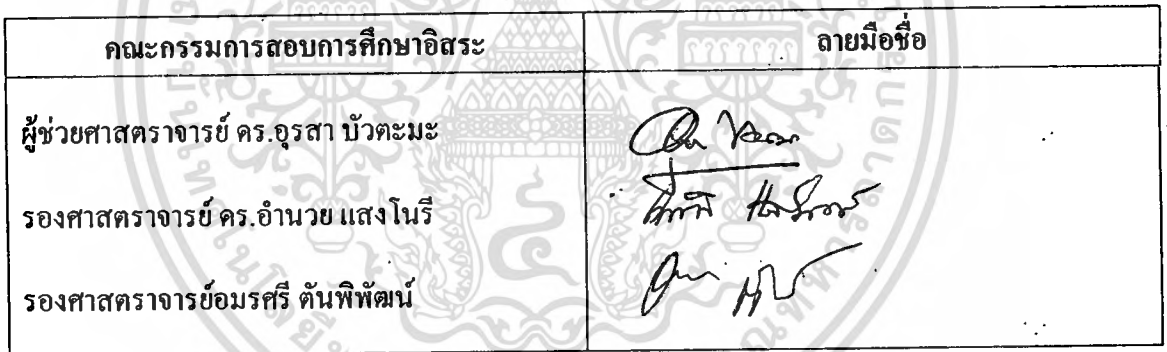 คณะกรรมการสอบการศึกษาอิสระ ลายมือชื่อ
ผู้ช่วยศาสตราจารย์ ดร.อุรสา บัวตะมะ
รองศาสตราจารย์ ดร.อำนวย แสงโนรี
รองศาสตราจารย์อมรศรี ตันพิพัฒน์